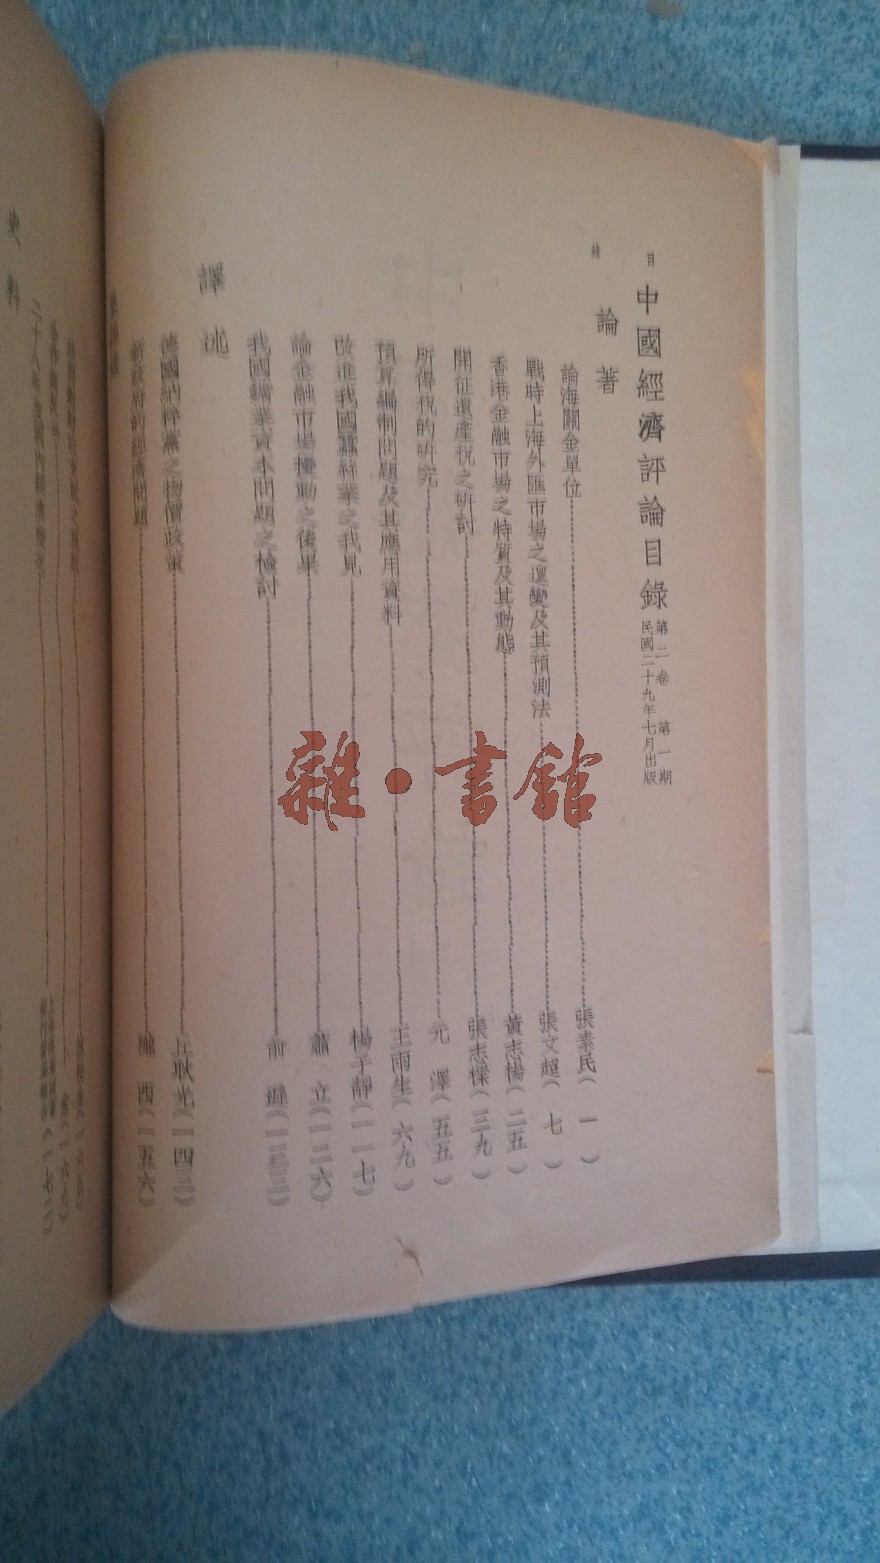 目錄
中國經濟評論目錄
第二卷 第一期
民國二十九年七月出版
論著
論海關金單位 張素民(一)
戰時上海外匯市場之遞變及其預測法 張文超(七)
香港金融市場之特質及其動態 黃志楊(二五)
開征遺產稅之研討 張志樑(三九)
所得稅的研究 元澤(五五)
預算編制問題及其應用資料 王雨生(六九)
改進我國蠶絲業之我見 楊子靜(一一七)
論金融市場變動之後果 蕭立(一二六)
我國鑛業資本問題之檢討 俞(一三三)
譯述
德國納粹黨之物價政策 丘耿光(一四三)
新政府的經濟問題 西(一五六)
史料
雜·書館